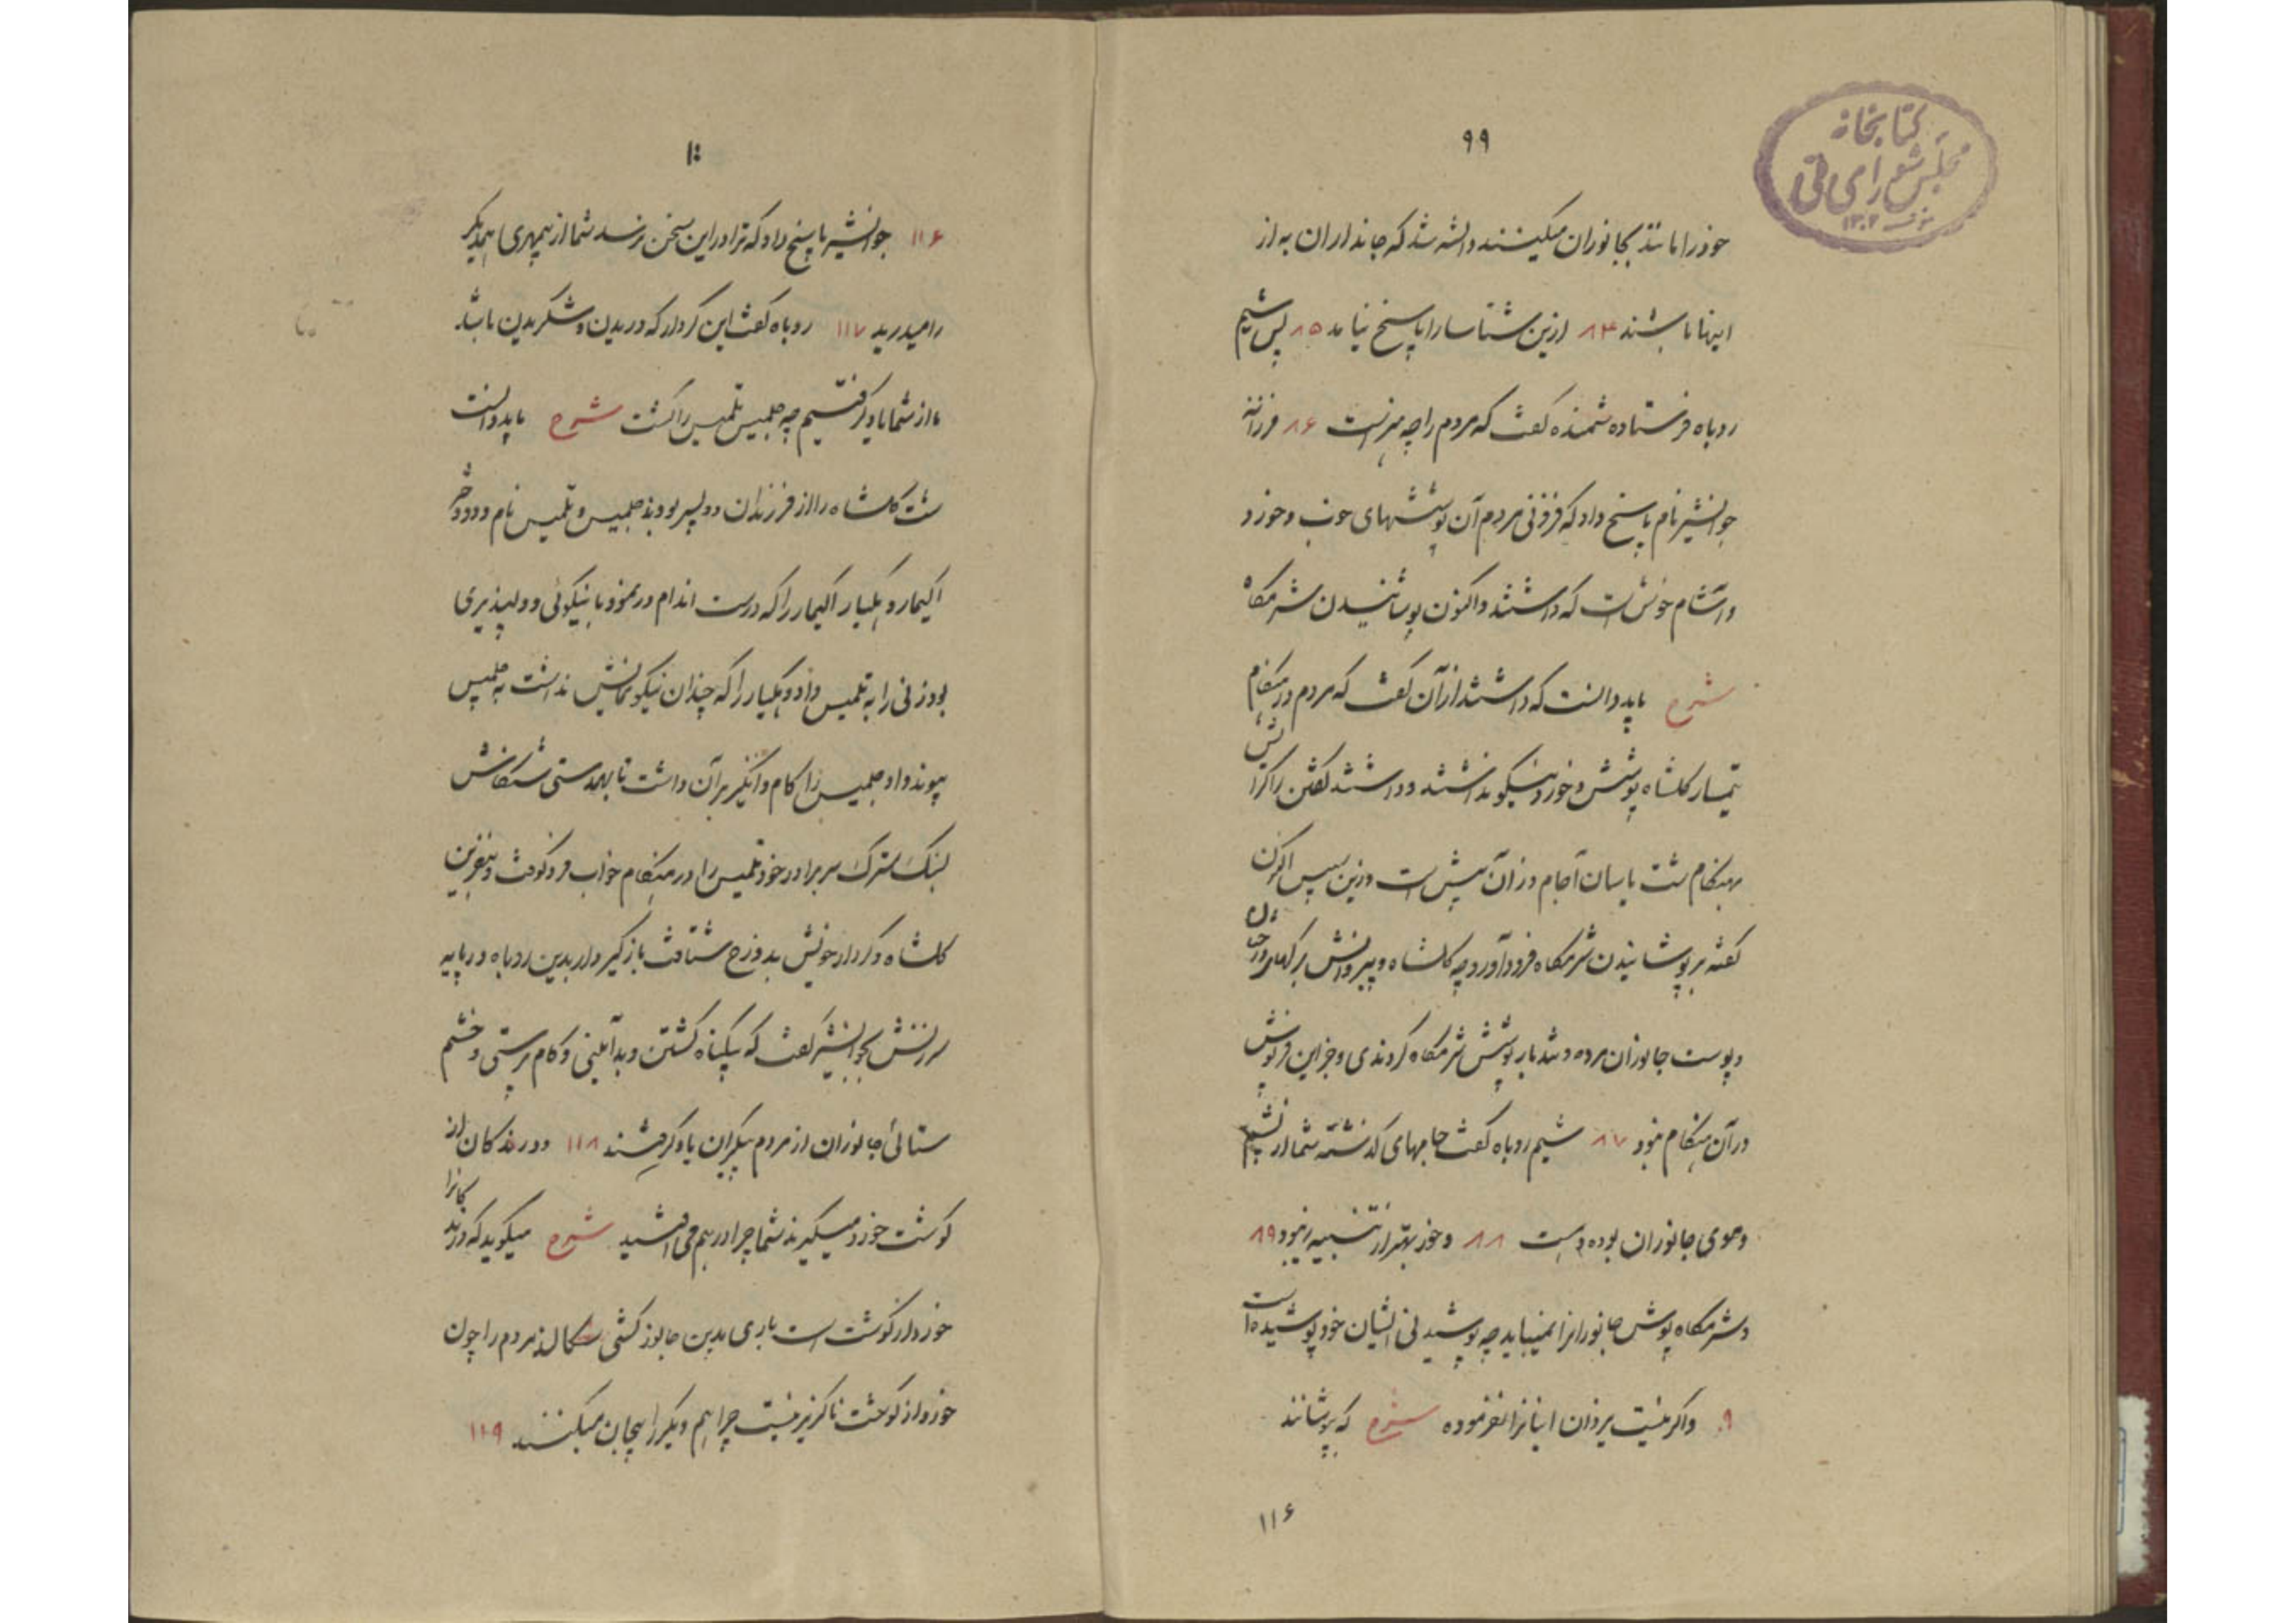 ۹۹
کتابخانه
مجلس شورای ملی
۱۳۰۲
خود را مانند بجانوران میکنند دانسته شد که جانداران به از
اینها باشند ۸۴ ازین شتاسارا پاسخ نیامد ۸۵ پس شیم
روباه فرستاده شمنده گفت که مردم را چه هنر است ۸۶ فرزانه
جوانشیر نام پاسخ داد که فزونی مردم آن پوششهای خوب و خورد
و آشام خوش است که داشتند و اکنون پوشانیدن شرمگاه
شرح باید دانست که داشتند از آن گفت که مردم در هنگام
تیمسار گلشاه پوشش و خورد نیکو نداشتند و داشتند گفتن را گزارش
بهنگام شت یاسان آجام وزان پیش است وزین سپس اکنون
گفته بر پوشانیدن شرمگاه فرود آورد چه گلشاه و پیروانش برگهای درختان
و پوست جانوران مرده و تندبار پوشش شرمگاه کردندی و جز این فرپوش
در آن هنگام نبود ۸۷ شیم روباه گفت جامهای گذشته شما از پشم
و موی جانوران بوده و هست ۸۸ و خورد بهتر از تنبیه زنبور ۸۹
و شرمگاه پوش جانورانرا نمیباید چه پوشیدنی ایشان خود پوشیده است
۹۰ و اگر نیست یزدان اینانرا نفرموده شرح که پوشانند
۱۱۶
۱۰۰
۱۱۶ جوانشیر پاسخ داد که ترا در این سخن نرسد شما از بیمهری همدیگر
را میدرید ۱۱۷ روباه گفت این کردار که دریدن و شکریدن باشد
ما از شما یاد گرفتیم چه جلمیس تلمیس را کشت شرح باید دانست
شت گلشاه را از فرزندان دو پسر بودند جلمیس و تلمیس نام و دو دختر
اکیمار و بلیار اکیمار را که درست اندام و رمزد با نیکوئی و دلپذیری
بود زنی را به تلمیس داد و بلیار را که چندان نیکو نمایش نداشت به جلمیس
پیوند داد جلمیس را کام و انگیز بر آن داشت تا بهمدستی سگالش
بسنگ سترک سر برادر خود تلمیس را در هنگام خواب فرو کوفت و بنفرین
گلشاه و کردار خویش بدوزخ شتافت بازگیر دار بدین روباه در پایه
سرزنش بجوانشیر گفت که بیگناه کشتن و بدآئینی و کام پرستی و خشم
ستائی جانوران از مردم پیکران یاد گرفتند ۱۱۸ و درندگان از
گوشت خورد میگیرند شما چرا در هم می افتید شرح میگوید که درندگانرا
خورد از گوشت است باری بدین جانور کشی سگالند مردم را چون
خورد از گوشت ناگزیر نیست چرا هم دیگر را بیجان میکنند ۱۱۹